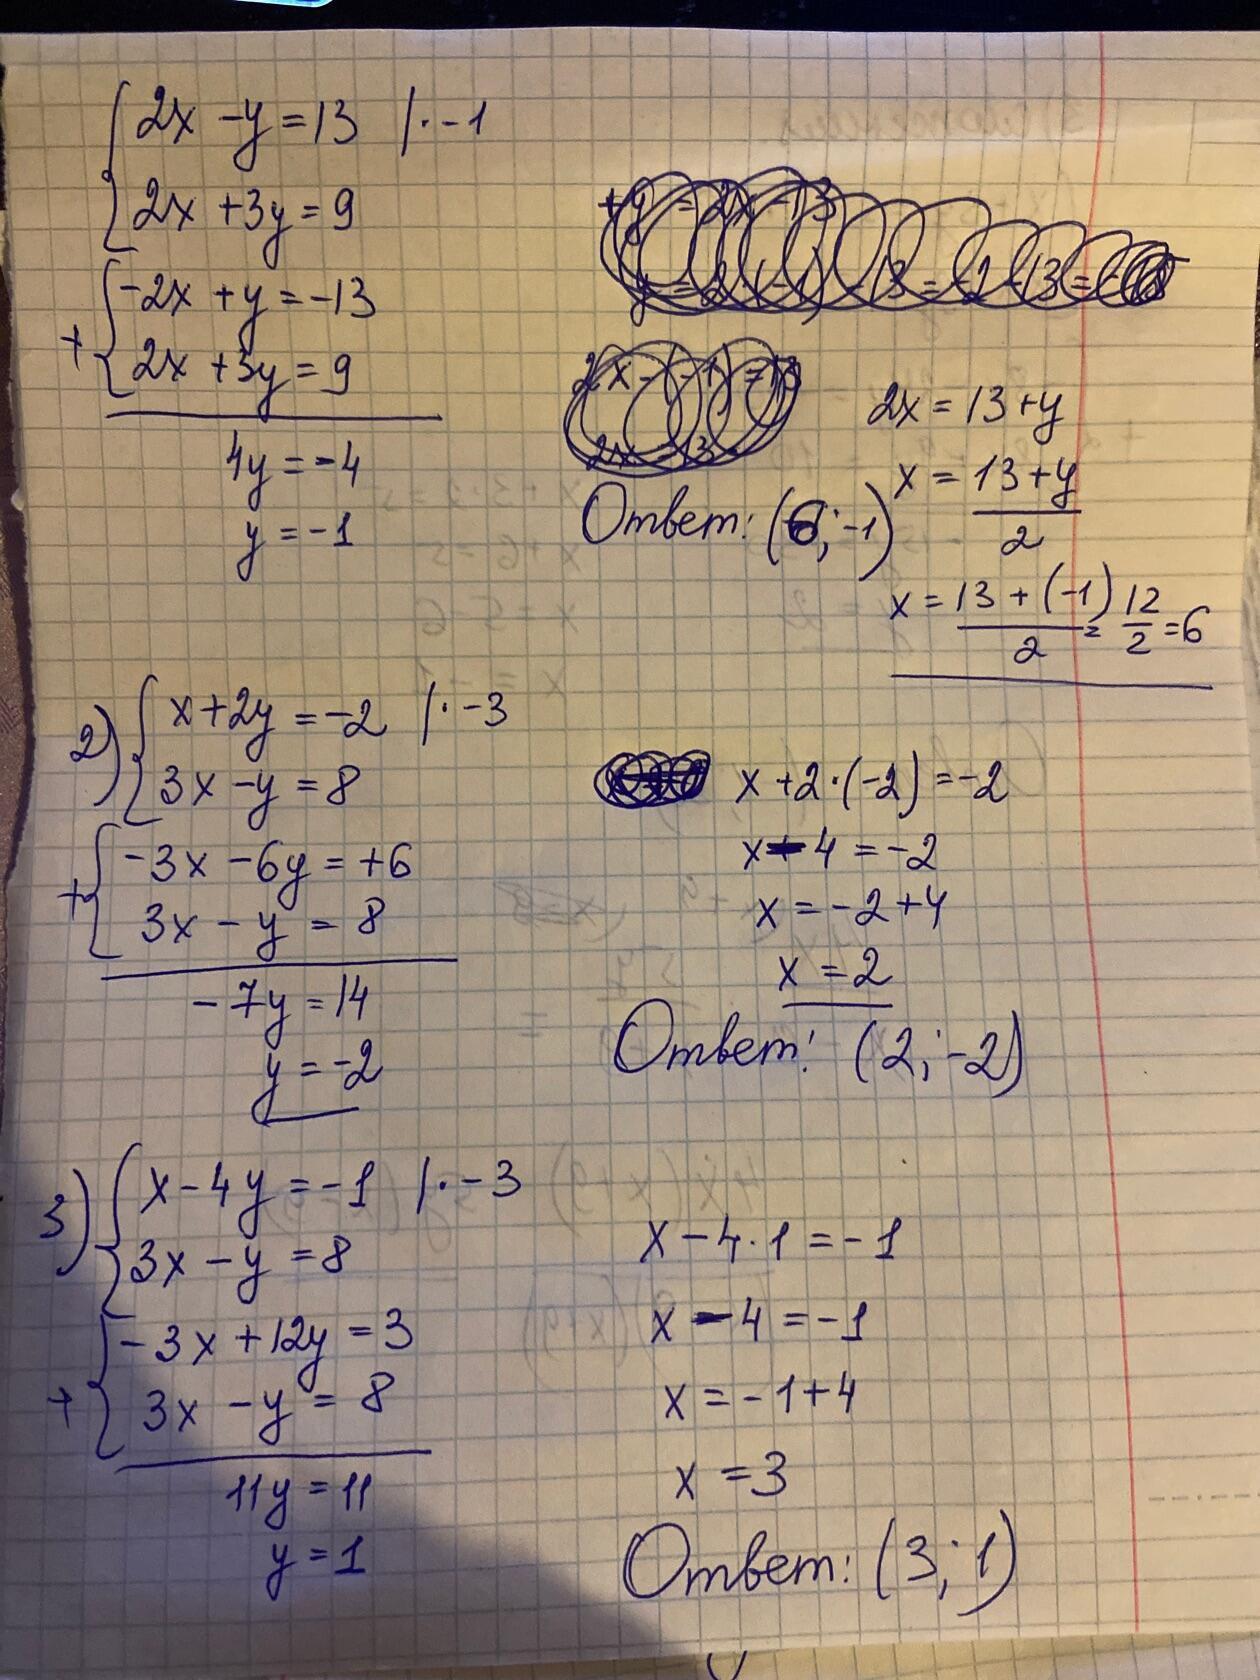 2x - y = 13 | · -1
2x + 3y = 9
-2x + y = -13
+
2x + 3y = 9
4y = -4
y = -1
+y = 2x - 13
2x - (-1) = 13
2x = 13 -
2x = 13 + y
x = 13 + y
2
x = 13 + (-1) = 12 = 6
2 2
Ответ: (6; -1)
2) x + 2y = -2 | · -3
3x - y = 8
-3x - 6y = +6
+
3x - y = 8
-7y = 14
y = -2
x + 2 · (-2) = -2
x - 4 = -2
x = -2 + 4
x = 2
Ответ: (2; -2)
3) x - 4y = -1 | · -3
3x - y = 8
-3x + 12y = 3
+
3x - y = 8
11y = 11
y = 1
x - 4 · 1 = -1
x - 4 = -1
x = -1 + 4
x = 3
Ответ: (3; 1)